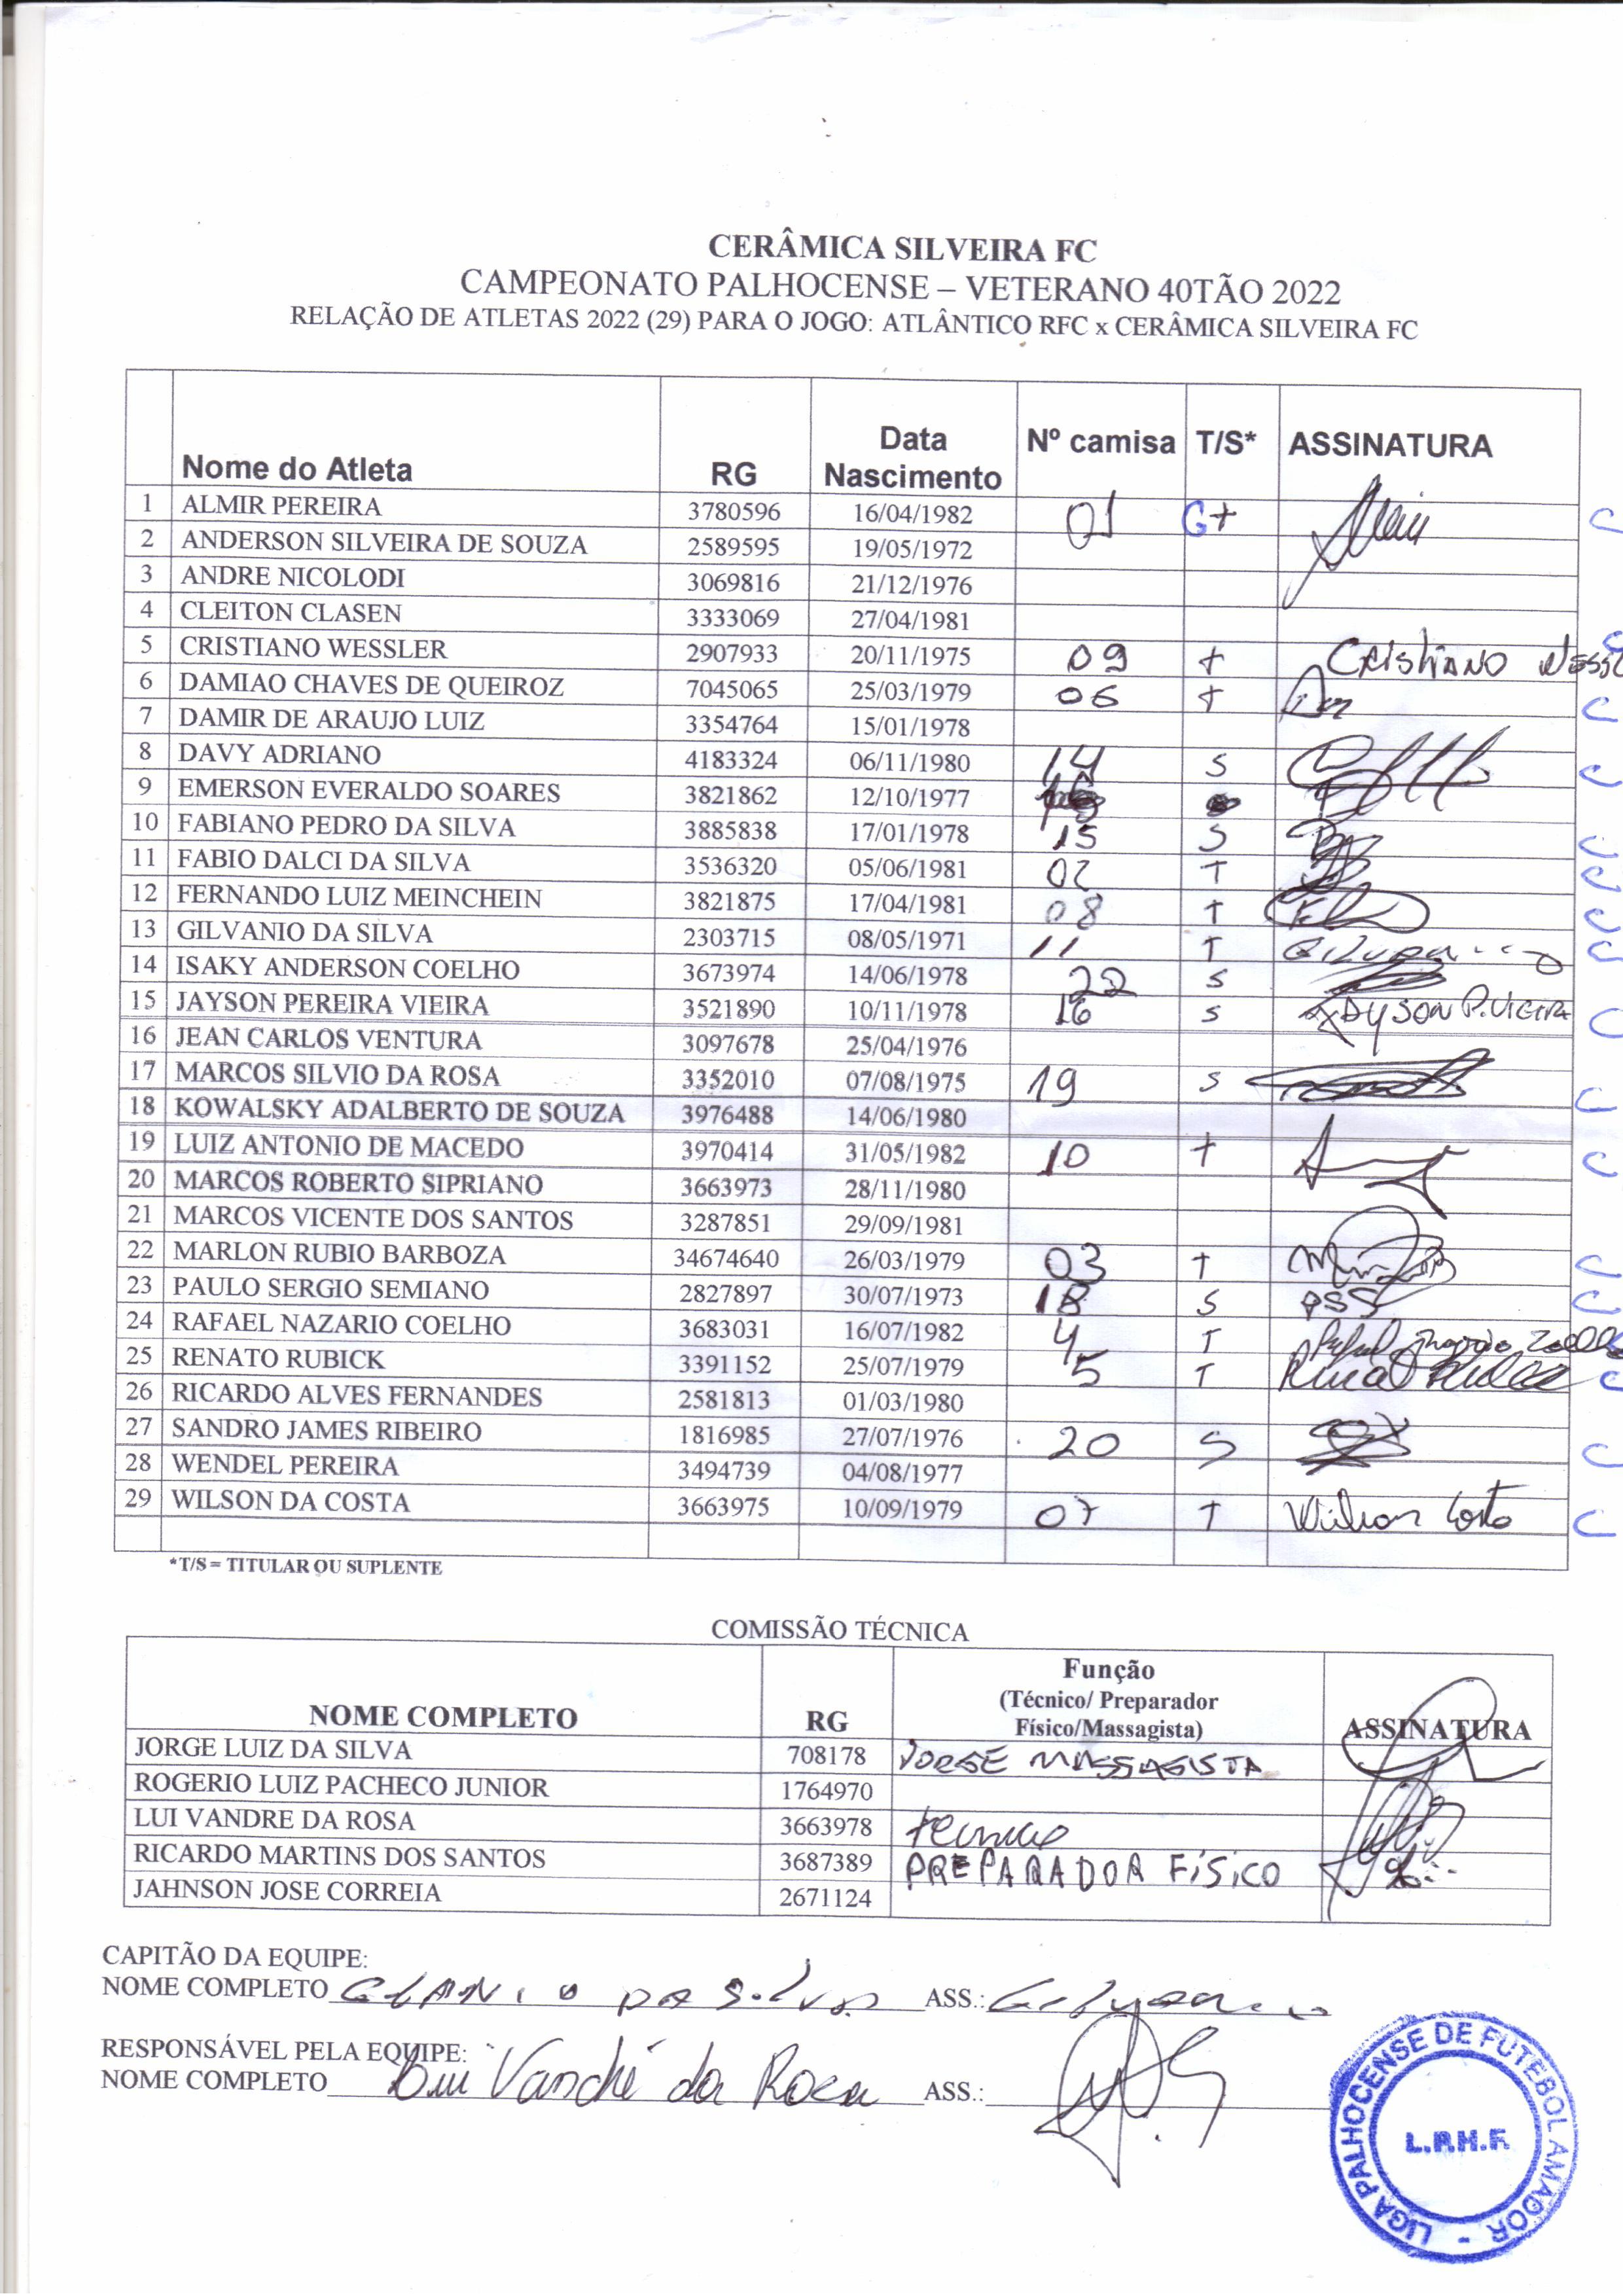 CERÂMICA SILVEIRA FC
CAMPEONATO PALHOCENSE – VETERANO 40TÃO 2022
RELAÇÃO DE ATLETAS 2022 (29) PARA O JOGO: ATLÂNTICO RFC x CERÂMICA SILVEIRA FC
Nome do Atleta RG Data Nascimento Nº camisa T/S* ASSINATURA
1 ALMIR PEREIRA 3780596 16/04/1982 01 G+ C
2 ANDERSON SILVEIRA DE SOUZA 2589595 19/05/1972
3 ANDRE NICOLODI 3069816 21/12/1976
4 CLEITON CLASEN 3333069 27/04/1981
5 CRISTIANO WESSLER 2907933 20/11/1975 09 T CRISTIANO C
6 DAMIAO CHAVES DE QUEIROZ 7045065 25/03/1979 06 T C
7 DAMIR DE ARAUJO LUIZ 3354764 15/01/1978
8 DAVY ADRIANO 4183324 06/11/1980 14 S C
9 EMERSON EVERALDO SOARES 3821862 12/10/1977
10 FABIANO PEDRO DA SILVA 3885838 17/01/1978 15 S C
11 FABIO DALCI DA SILVA 3536320 05/06/1981 02 T C
12 FERNANDO LUIZ MEINCHEIN 3821875 17/04/1981 08 T C
13 GILVANIO DA SILVA 2303715 08/05/1971 11 T C
14 ISAKY ANDERSON COELHO 3673974 14/06/1978 22 S
15 JAYSON PEREIRA VIEIRA 3521890 10/11/1978 16 S JAYSON P. VIEIRA C
16 JEAN CARLOS VENTURA 3097678 25/04/1976
17 MARCOS SILVIO DA ROSA 3352010 07/08/1975 19 S C
18 KOWALSKY ADALBERTO DE SOUZA 3976488 14/06/1980
19 LUIZ ANTONIO DE MACEDO 3970414 31/05/1982 10 T C
20 MARCOS ROBERTO SIPRIANO 3663973 28/11/1980
21 MARCOS VICENTE DOS SANTOS 3287851 29/09/1981
22 MARLON RUBIO BARBOZA 34674640 26/03/1979 03 T C
23 PAULO SERGIO SEMIANO 2827897 30/07/1973 18 S PSS C
24 RAFAEL NAZARIO COELHO 3683031 16/07/1982 4 T
25 RENATO RUBICK 3391152 25/07/1979 5 T C
26 RICARDO ALVES FERNANDES 2581813 01/03/1980
27 SANDRO JAMES RIBEIRO 1816985 27/07/1976 20 S C
28 WENDEL PEREIRA 3494739 04/08/1977
29 WILSON DA COSTA 3663975 10/09/1979 07 T Wilson Costa C
*T/S = TITULAR OU SUPLENTE
COMISSÃO TÉCNICA
NOME COMPLETO RG Função (Técnico/ Preparador Físico/Massagista) ASSINATURA
JORGE LUIZ DA SILVA 708178 JORGE MASSAGISTA
ROGERIO LUIZ PACHECO JUNIOR 1764970
LUI VANDRE DA ROSA 3663978 tecnico
RICARDO MARTINS DOS SANTOS 3687389 PREPARADOR FÍSICO
JAHNSON JOSE CORREIA 2671124
CAPITÃO DA EQUIPE:
NOME COMPLETO DA Silva ASS.:
RESPONSÁVEL PELA EQUIPE:
NOME COMPLETO Lui Vandré da Rosa ASS.:
LIGA PALHOCENSE DE FUTEBOL AMADOR -